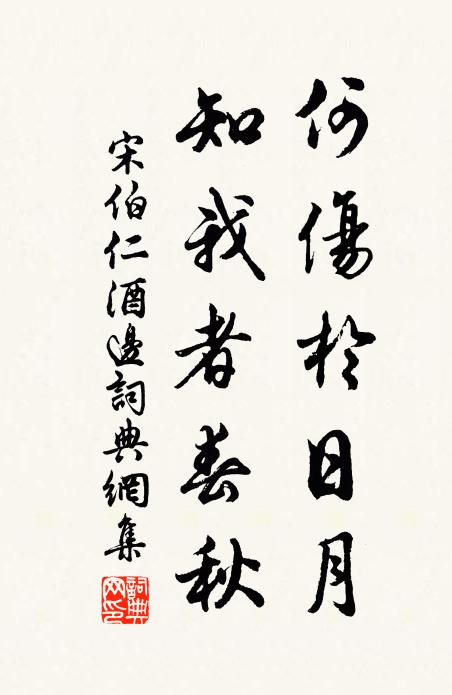 何傷於日月
知我者春秋
宋伯仁酒邊詞典網集
詞典网印